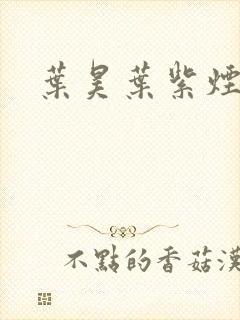 葉昊葉紫煙
不點的香菇漢